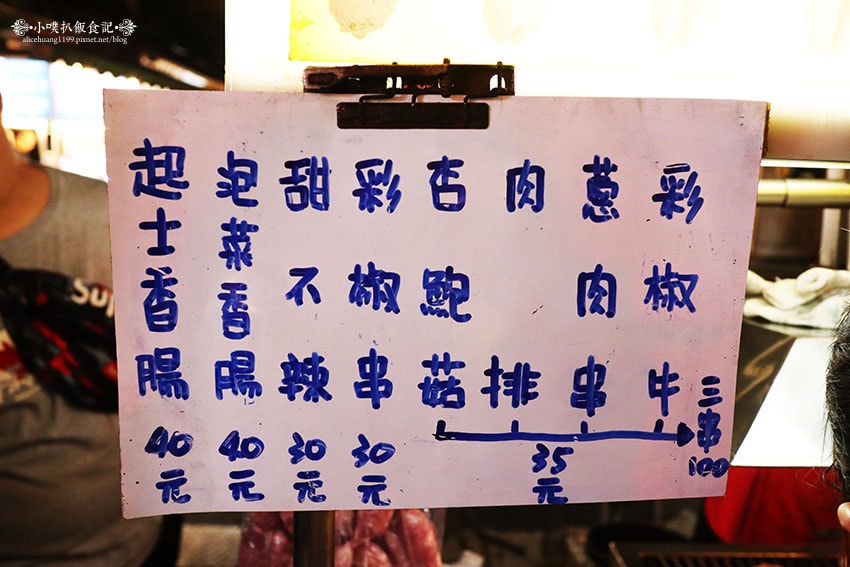 小噗扒飯食記
alicehuang1199.pixnet.net/blog
彩椒牛
蔥肉串
肉排
杏鮑菇
35元
三串100
彩椒串30元
甜不辣30元
泡菜香腸40元
起士香腸40元
Sup